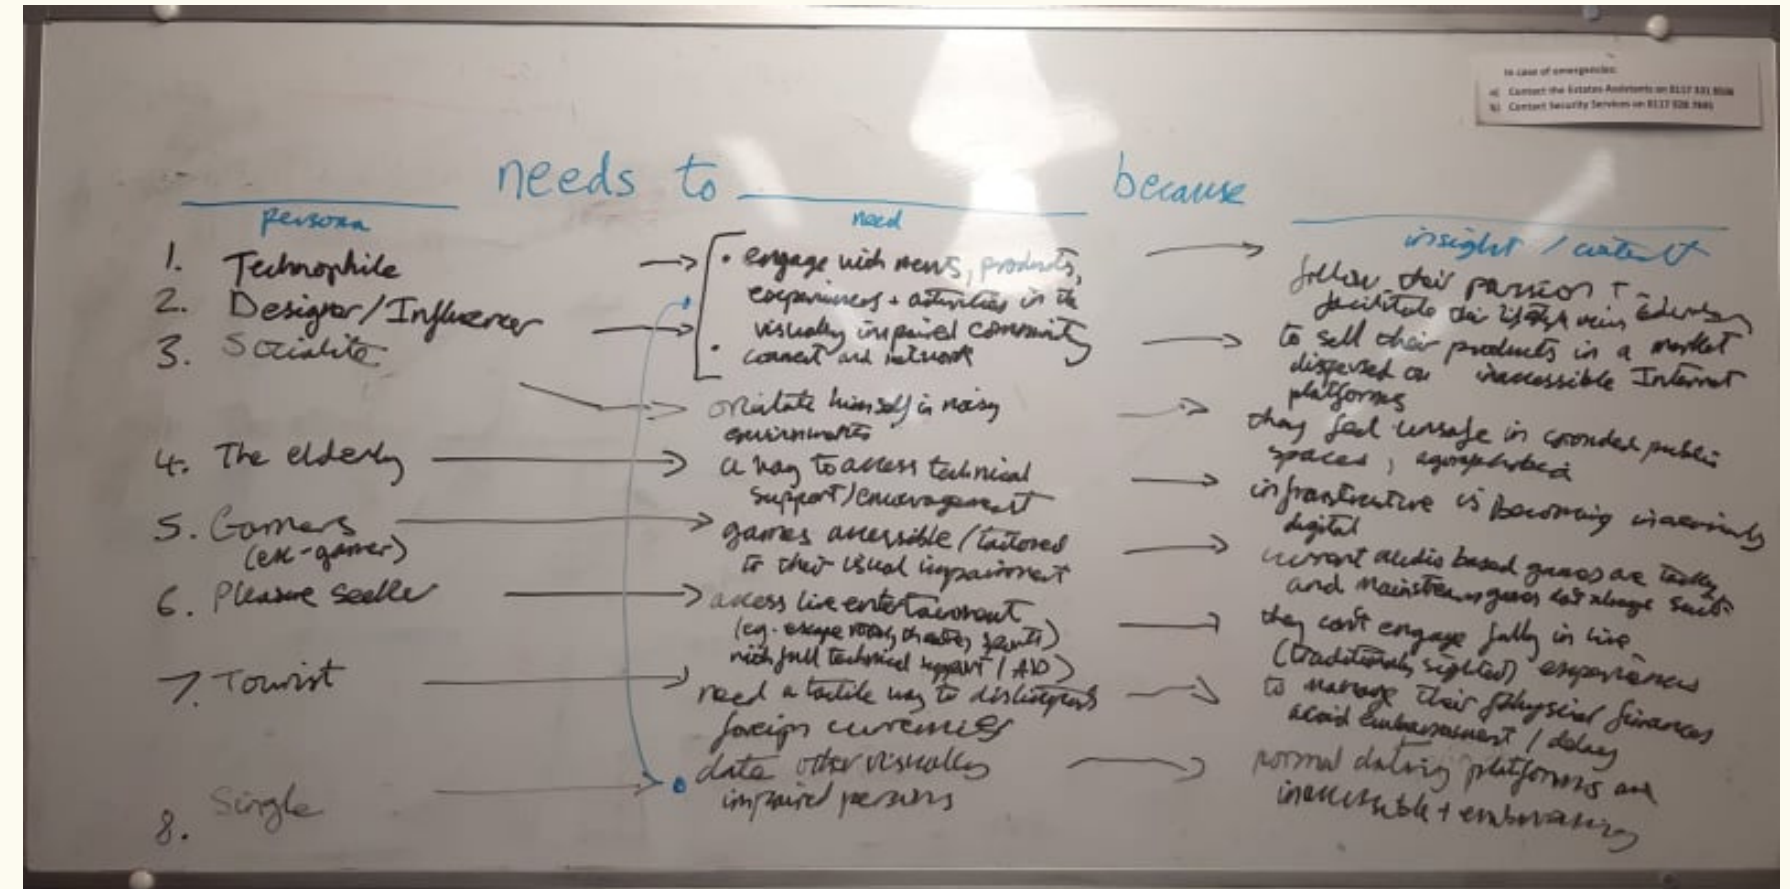 In case of emergencies:
a) Contact the Estates Assistants on 0117 331
b) Contact Security Services on 0117 928
needs to
because
persona
need
insight /
1. Technophile
2. Designer/Influencer
3. Socialite
4. The elderly
5. Gamers
(ex-gamer)
6. Pleasure seeker
7. Tourist
8. Single
• engage with news, products,
experiences + activities in the
visually impaired community
• connect and network
orientate himself in noisy
environments
a way to access technical
support/encouragement
games accessible/tailored
to their visual impairment
access live entertainment
(eg. escape rooms, theatre, sports)
with full technical support / AD)
need a tactile way to distinguish
foreign currencies
date other visually
impaired persons
follow their passion +
facilitate their
to sell their products in a market
dispersed on inaccessible Internet
platforms
they feel unsafe in crowded public
spaces, agoraphobia
infrastructure is becoming increasingly
digital
current audio based games are
and mainstream games not always
they can't engage fully in live
(traditionally sighted) experiences
to manage their physical finances
avoid embarrassment / delay
normal dating platforms are
inaccessible + embarrassing